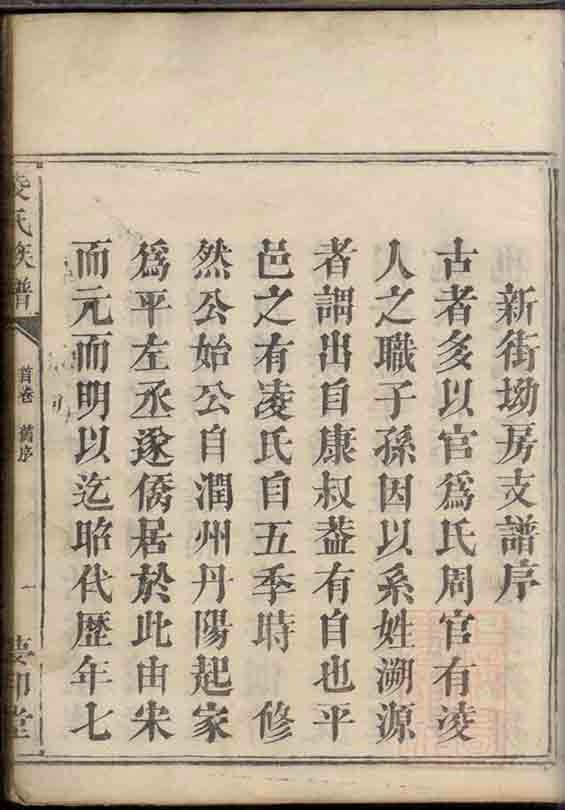 新街坳房支譜序
古者多以官爲氏周官有凌
人之職子孫因以系姓溯源
者謂出自康叔葢有自也平
邑之有凌氏自五季時 修
然公始公自潤州丹陽起家
爲平左丞遂僑居於此由宋
而元而明以迄昭代歷年七
凌氏族譜
首卷 舊序
一